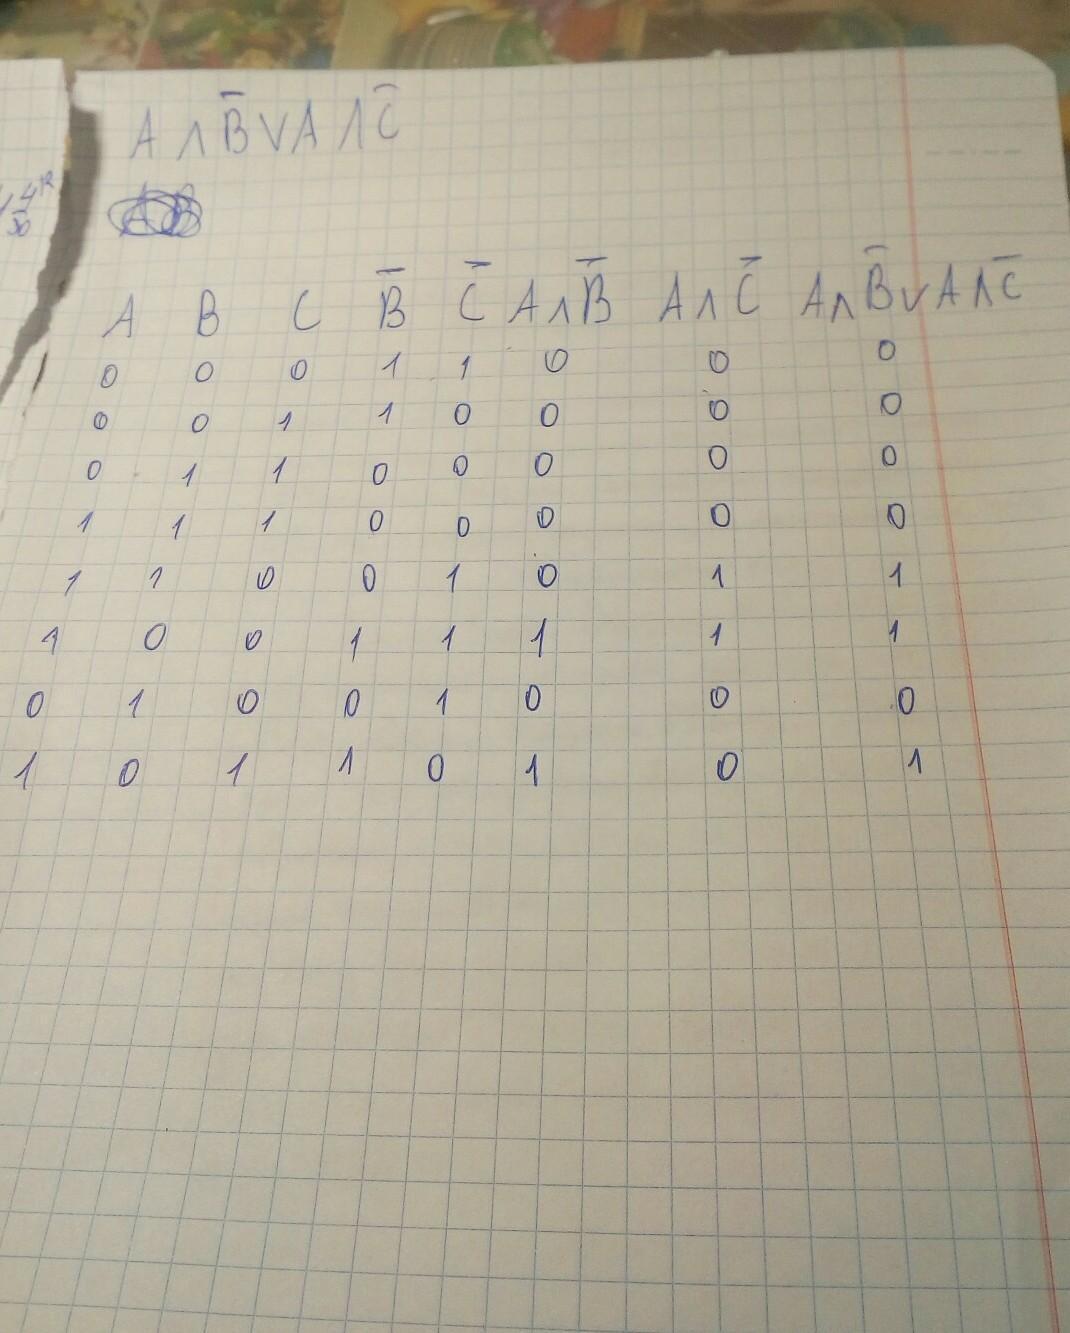 A ∧ B̅ ∨ A ∧ C̅
A B C B̅ C̅ A∧B̅ A∧C̅ A∧B̅∨A∧C̅
0 0 0 1 1 0 0 0
0 0 1 1 0 0 0 0
0 1 1 0 0 0 0 0
1 1 1 0 0 0 0 0
1 1 0 0 1 0 1 1
1 0 0 1 1 1 1 1
0 1 0 0 1 0 0 0
1 0 1 1 0 1 0 1